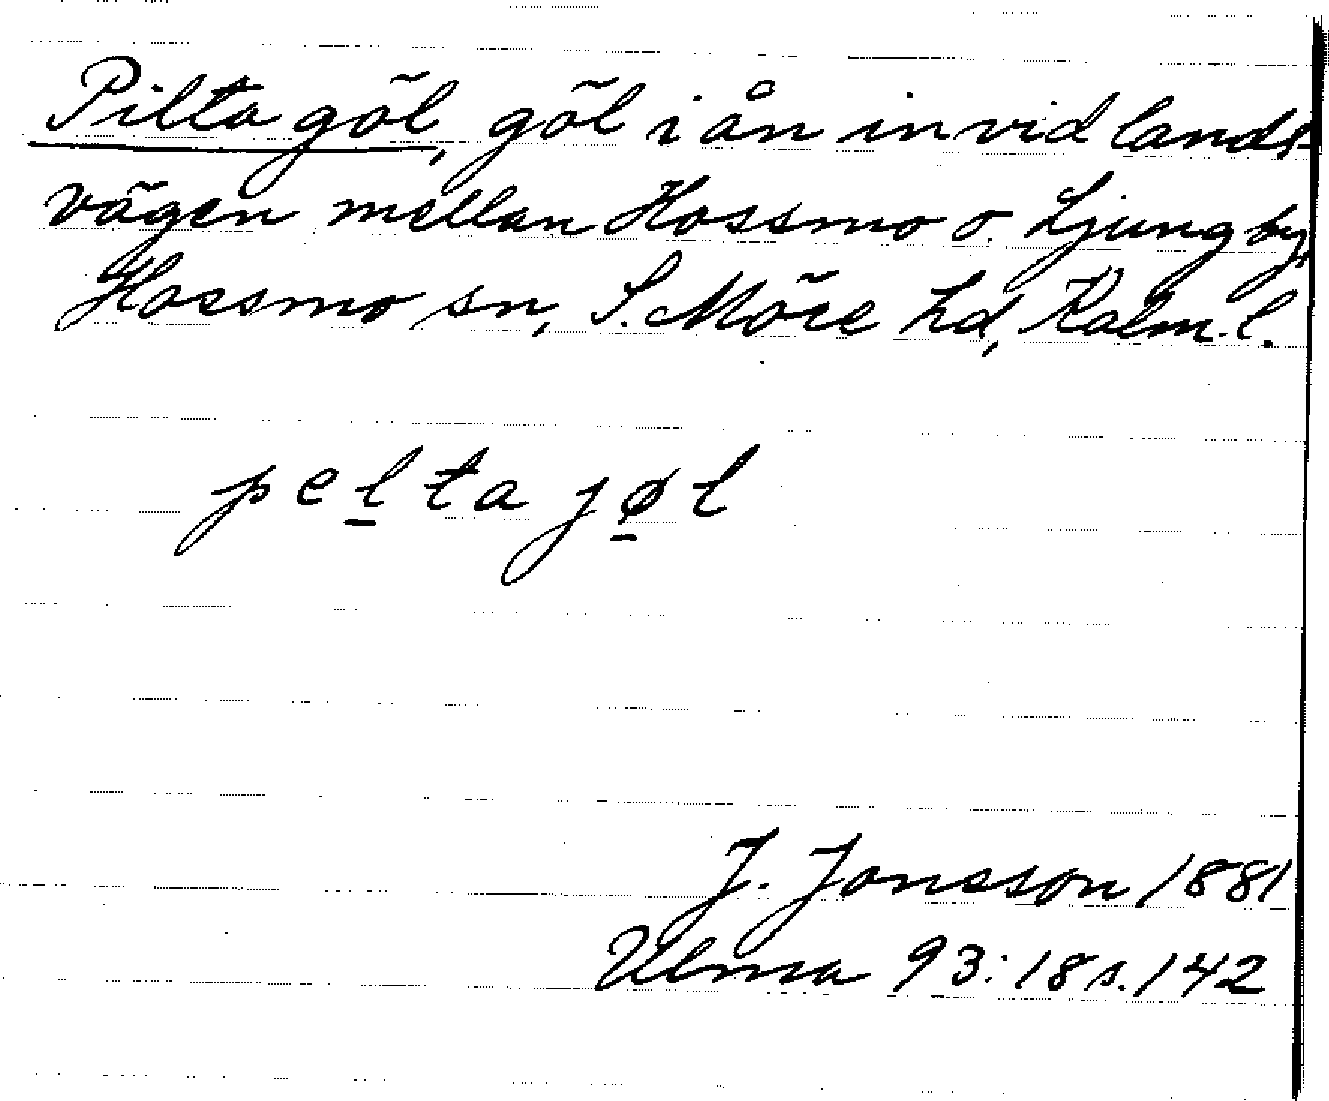 Pilta göl, göl i ån invid lands-
vägen mellan Hossmo o. Ljungby,
Hossmo sn, S. Möre hd, Kalm. l.
pelta jøl
J. Jonsson 1881
Ulma 93:18 s. 142